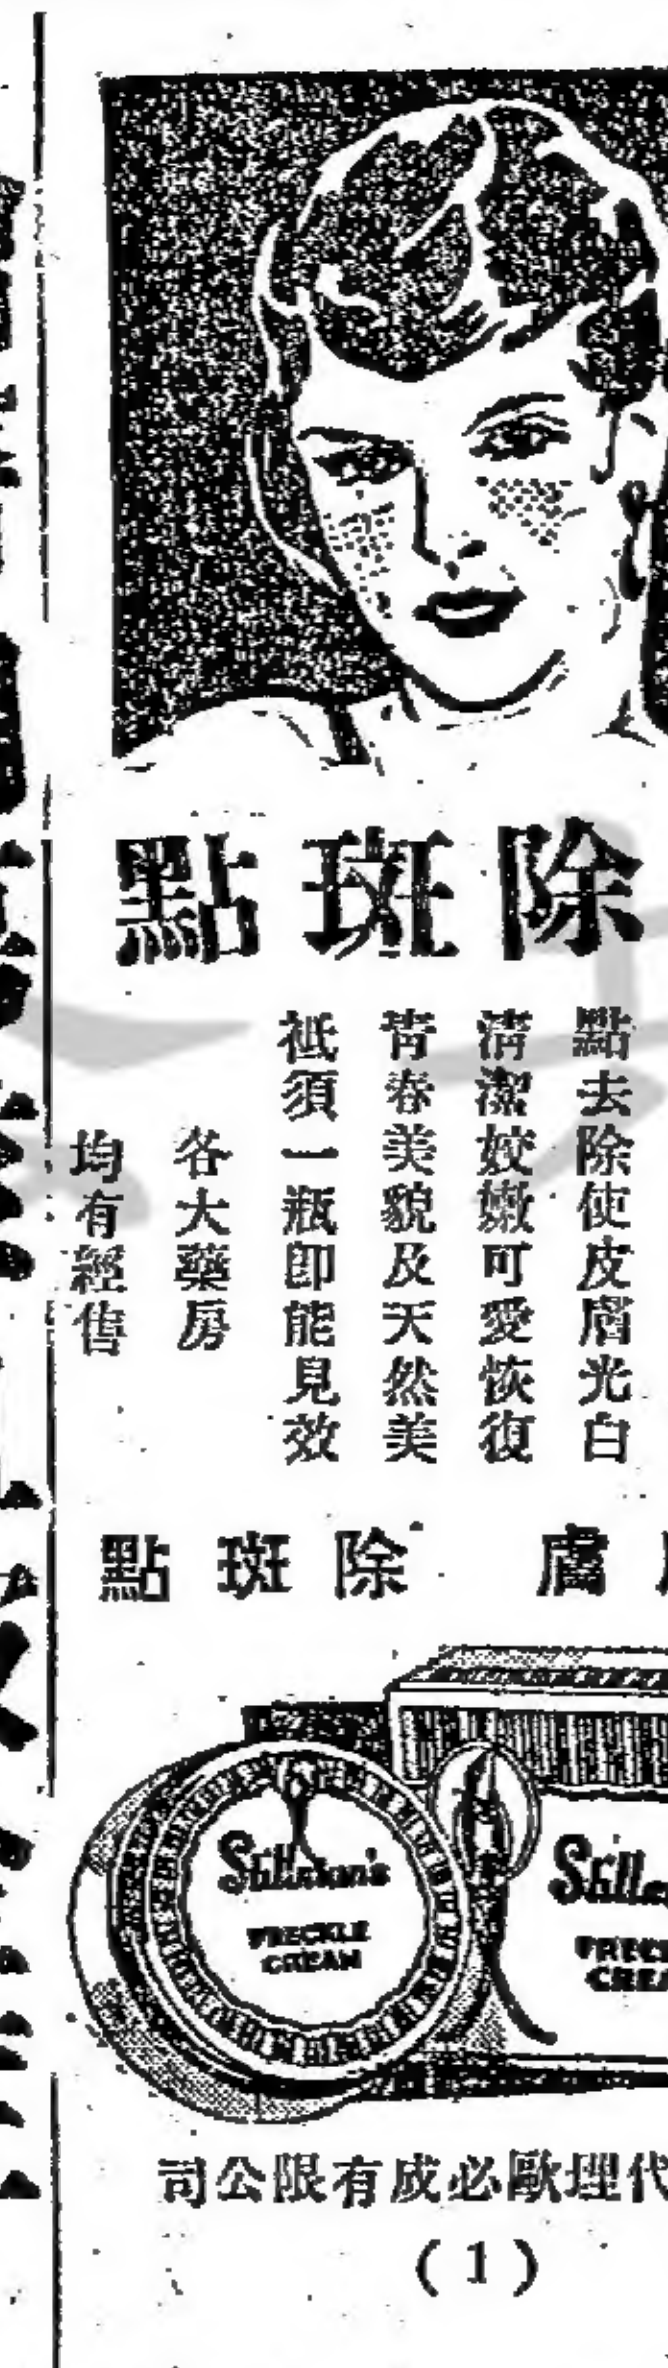 除斑點
點去除使皮膚光白
清潔姣嫩可愛恢復
青春美貌及天然美
祗須一瓶即能見效
各大藥房
均有經售
膚 除斑點
Stillman's
FRECKLE
CREAM
代理歐必成有限公司
(1)